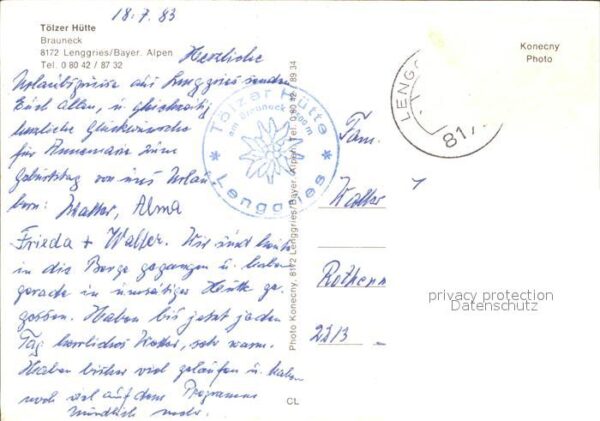 18.7.83
Tölzer Hütte
Brauneck
8172 Lenggries/Bayer. Alpen
Tel. 0 80 42 / 87 32
Herzliche
Urlaubsgrüsse aus Lenggries senden
Euch Allen, u. gleichzeitig
herzliche Glückwünsche
für Annemarie zum
Geburtstag von uns Urlau
bern: Walter, Alma
Frieda + Walter. Wir sind heute
in die Berge gegangen u. haben
gerade in Hütte ge
gessen. Haben bis jetzt jeden
Tag herrliches Wetter, sehr warm.
Haben bisher viel gelaufen u. haben
noch viel auf dem Programm
mündlich mehr.
Tölzer Hütte
am Brauneck
Lenggries
Photo Konecny, 8172 Lenggries/Bayer. Alpen, Tel. 0 80 42 / 89 34
CL
Konecny
Photo
LENGG
817
Fam.
Rothenn
2213
privacy protection
Datenschutz